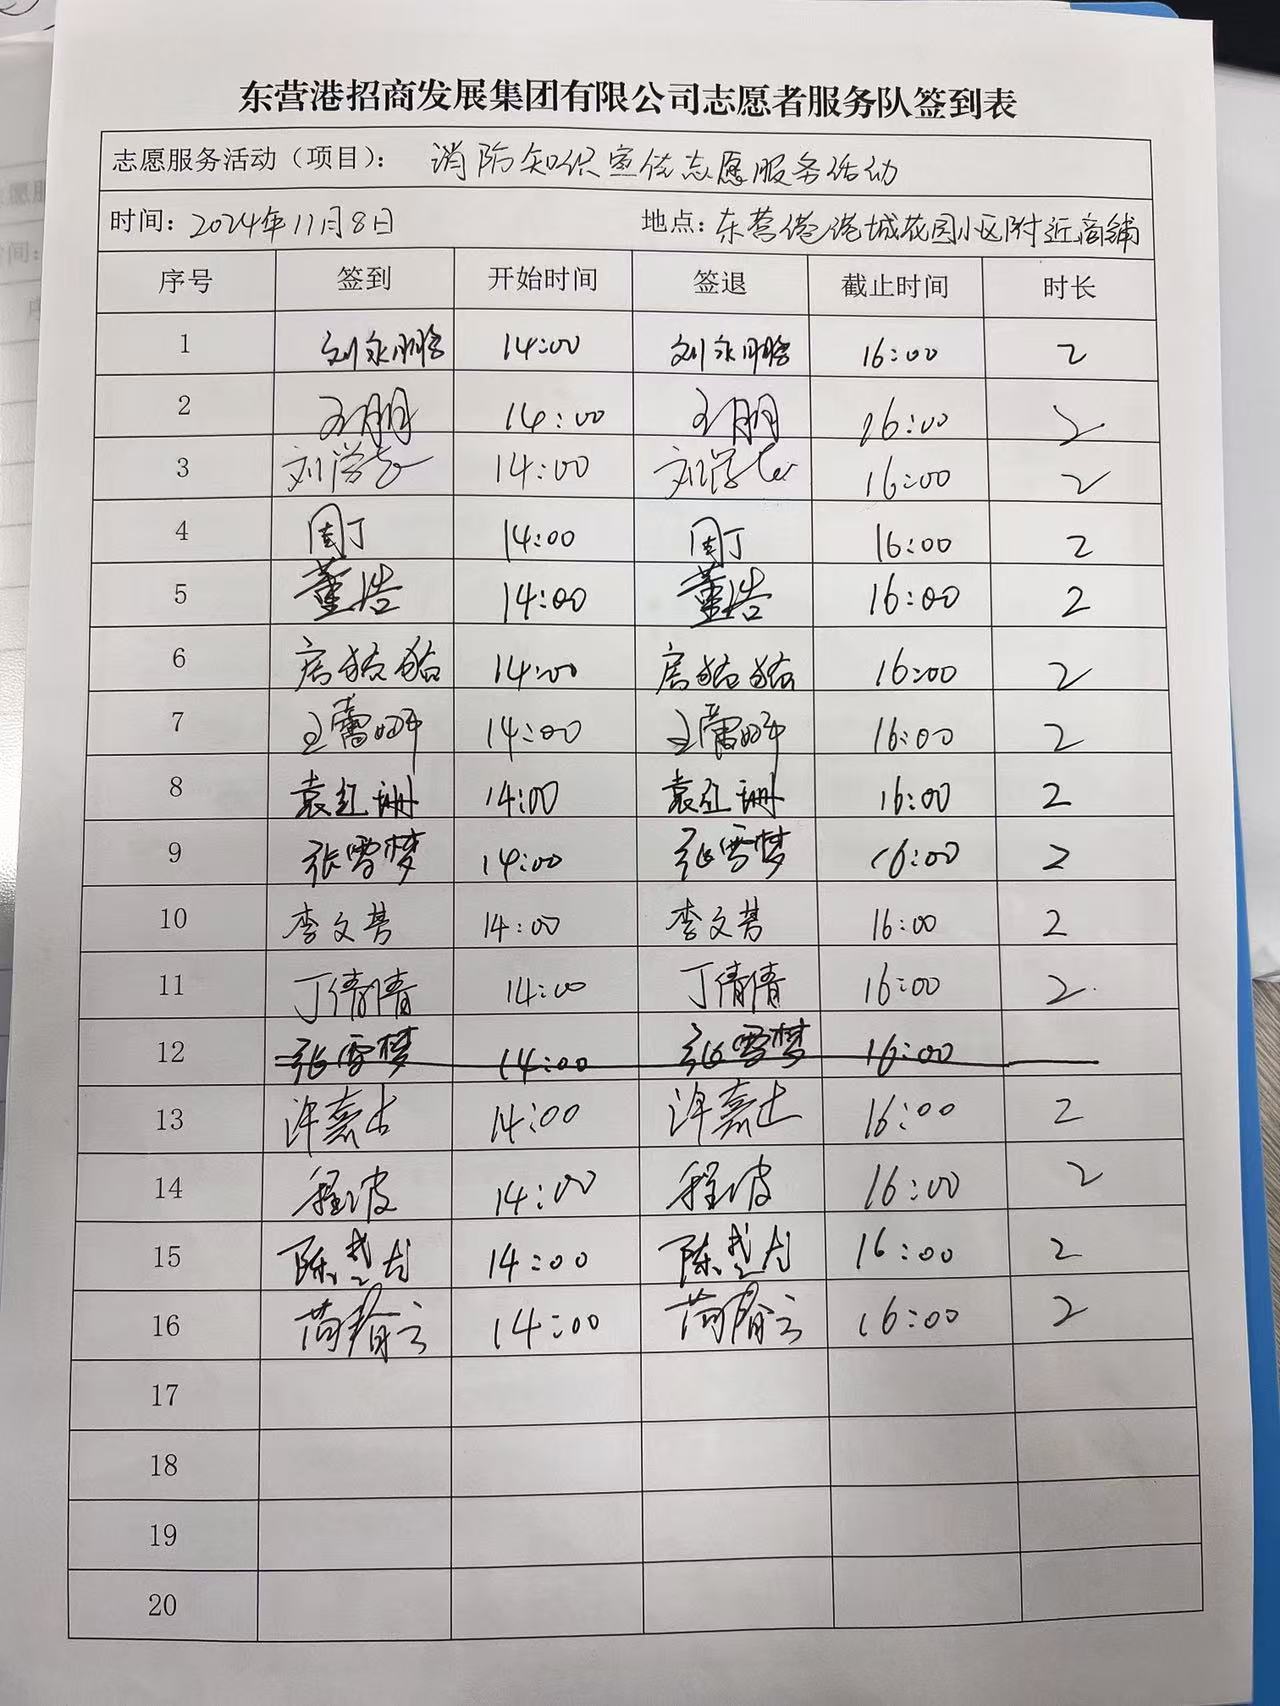 东营港招商发展集团有限公司志愿者服务队签到表
志愿服务活动（项目）： 消防知识宣传志愿服务活动
时间：2024年11月8日 地点：东营港港城花园小区附近商铺
序号 签到 开始时间 签退 截止时间 时长
1 刘永鹏 14:00 刘永鹏 16:00 2
2 王朋 14:00 王朋 16:00 2
3 14:00 16:00 2
4 周丁 14:00 周丁 16:00 2
5 董浩 14:00 董浩 16:00 2
6 14:00 16:00 2
7 王蕾妍 14:00 王蕾妍 16:00 2
8 袁红珊 14:00 袁红珊 16:00 2
9 张雪梦 14:00 张雪梦 16:00 2
10 李文芳 14:00 李文芳 16:00 2
11 丁倩倩 14:00 丁倩倩 16:00 2
12 张雪梦 14:00 张雪梦 16:00
13 14:00 16:00 2
14 程波 14:00 程波 16:00 2
15 陈楚龙 14:00 陈楚龙 16:00 2
16 14:00 16:00 2
17
18
19
20